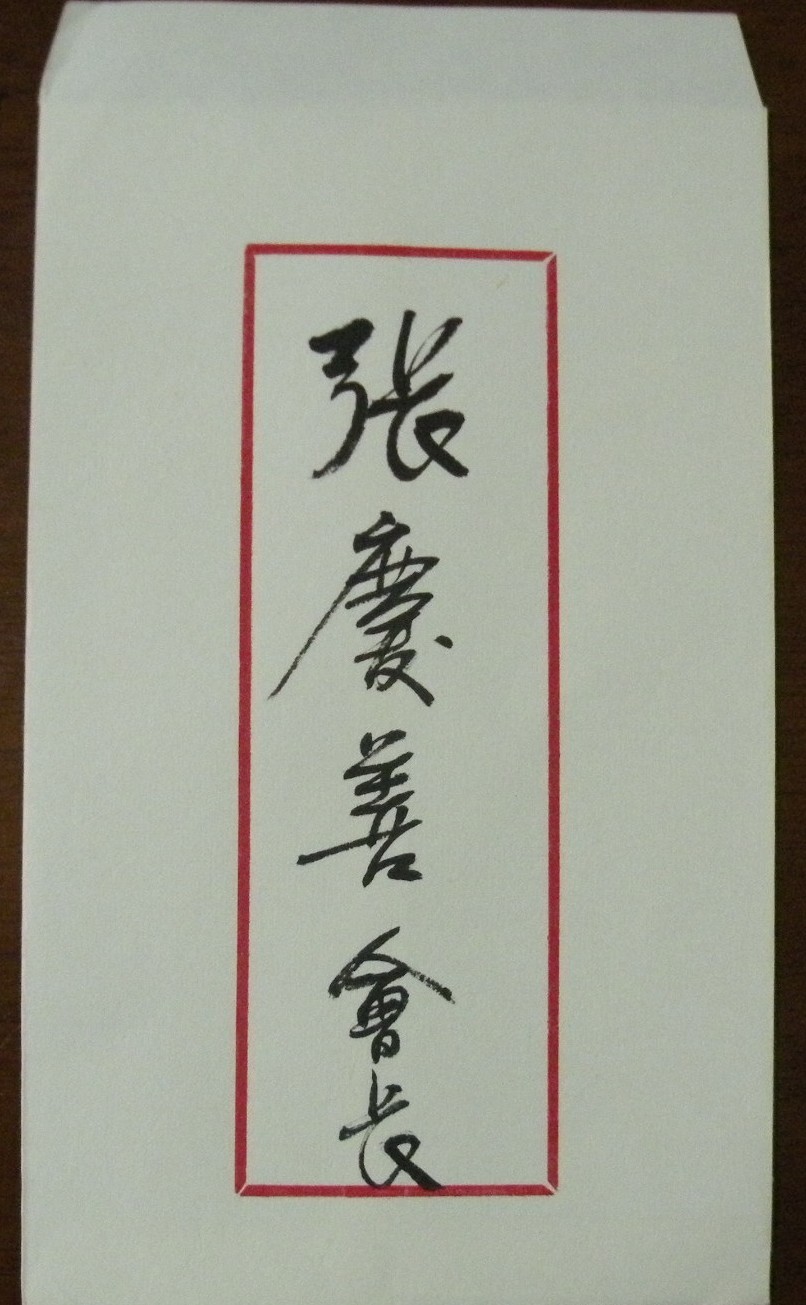 張慶善會长